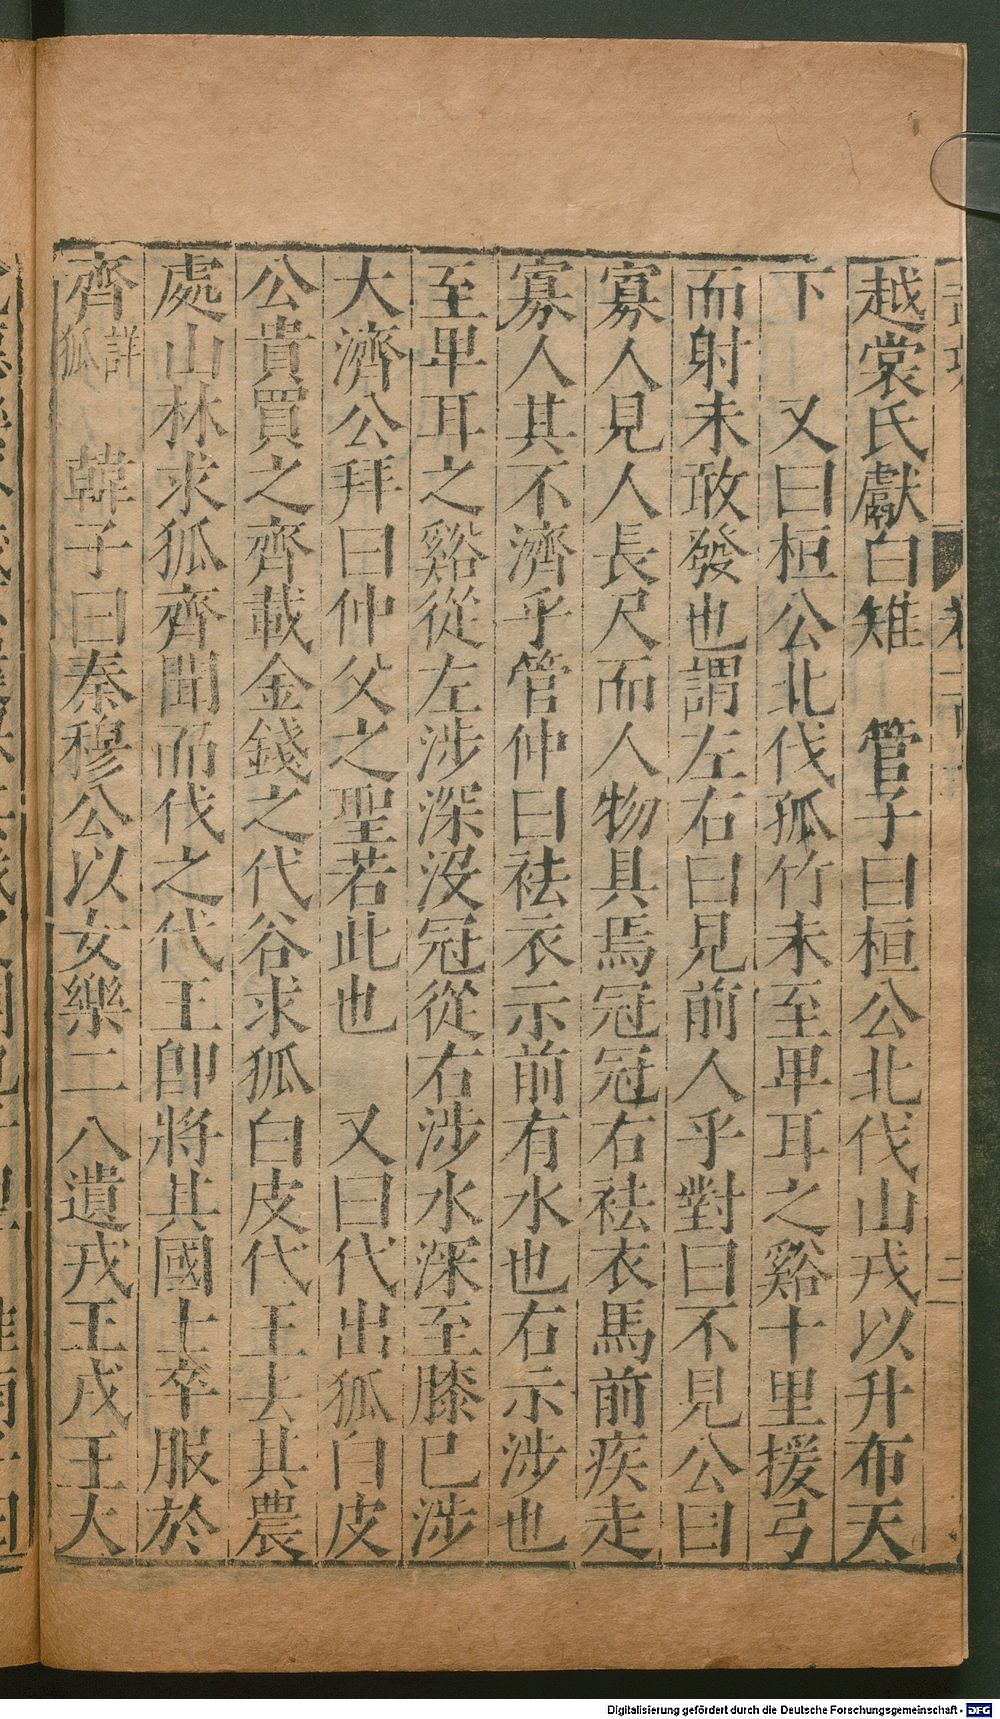 越裳氏獻白雉　管子曰桓公北伐山戎以升布天
下　又曰桓公北伐孤竹未至卑耳之谿十里援弓
而射未敢發也謂左右曰見前人乎對曰不見公曰
寡人見人長尺而人物具焉冠冠右袪衣馬前疾走
寡人其不濟乎管仲曰袪衣示前有水也右示涉也
至卑耳之谿從左涉深没冠從右涉水深至膝已涉
大濟公拜曰仲父之聖若此也　又曰代出狐白皮
公貴買之齊載金錢之代谷求狐白皮代王去其農
處山林求狐齊聞而伐之代王卽將其國士卒服於
齊詳狐　韓子曰秦穆公以女樂二八遺戎王戎王大
Digitalisierung gefördert durch die Deutsche Forschungsgemeinschaft - DFG